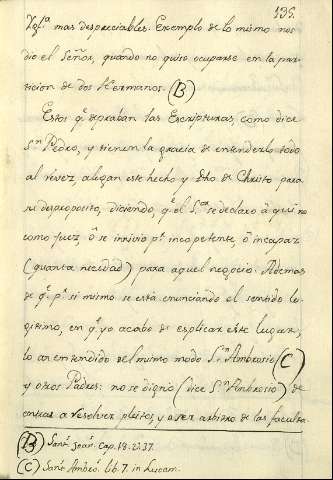 135.
Igl.ª mas despreciables. Exemplo de lo mismo nos
dio el Señor, quando no quiso ocuparse en la par-
ticion de dos Hermanos. (B)
Estos q.e depraban las Escripturas, como dice
S.n Pedro, y tienen la gracia de entenderlo todo
al rever, alegan este hecho y dho de Christo para
su desproposito, diciendo, q.e el S.or se declaro aqui no
como Juez, ô se inivio p.r incopetente, ô incapaz
(quanta necidad) para aquel negocio. Ademas
de q.e p.r si mismo se está enunciando el sentido le-
gitimo, en q.e yo acabo de esplicar este lugar,
lo an entendido del mismo modo S.n Ambrosio (C)
y otros Padres: no se dignó (dice S.n Ambrosio) de
entrar a resolver pleitos, y a ser arbitro de las faculta-
(B) San.t Joan. Cap. 18. v. 37.
(C) San.t Ambro. lib. 7. in Lucam.